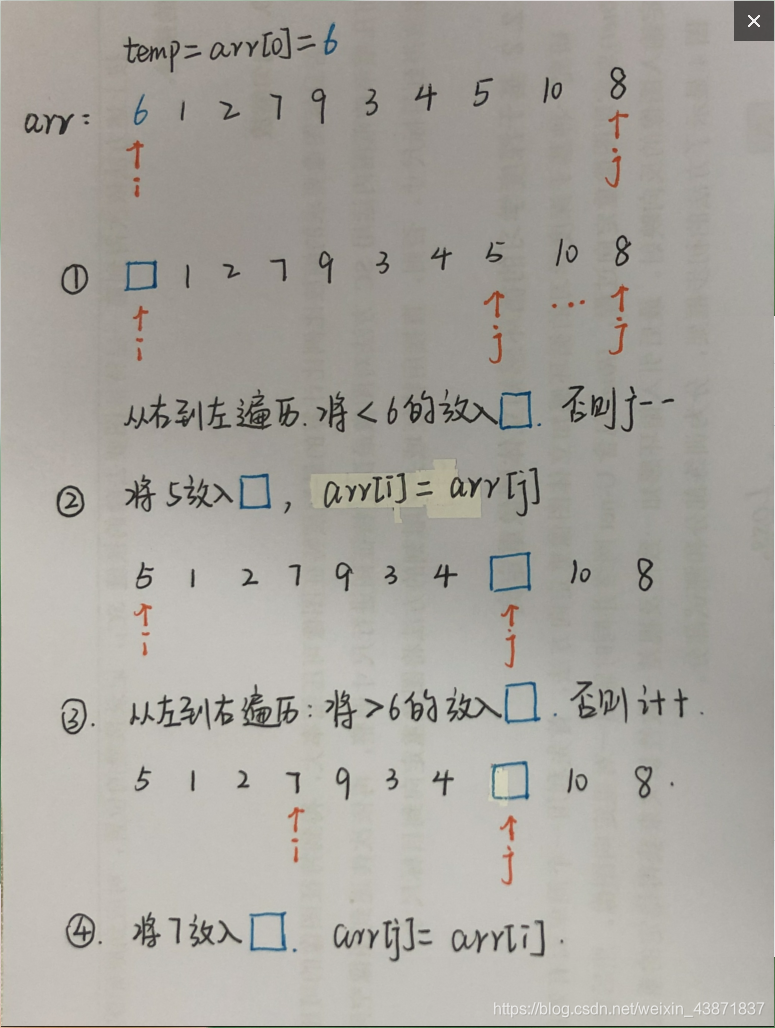 temp = arr[0] = 6
arr: 6 1 2 7 9 3 4 5 10 8
↑ ↑
i j
① □ 1 2 7 9 3 4 5 10 8
↑ ↑ ... ↑
i j j
从右到左遍历. 将 < 6 的放入□. 否则 j--
② 将 5 放入□, arr[i] = arr[j]
5 1 2 7 9 3 4 □ 10 8
↑ ↑
i j
③. 从左到右遍历: 将 > 6 的放入□. 否则 i++.
5 1 2 7 9 3 4 □ 10 8.
↑ ↑
i j
④. 将 7 放入□. arr[j] = arr[i].
https://blog.csdn.net/weixin_43871837